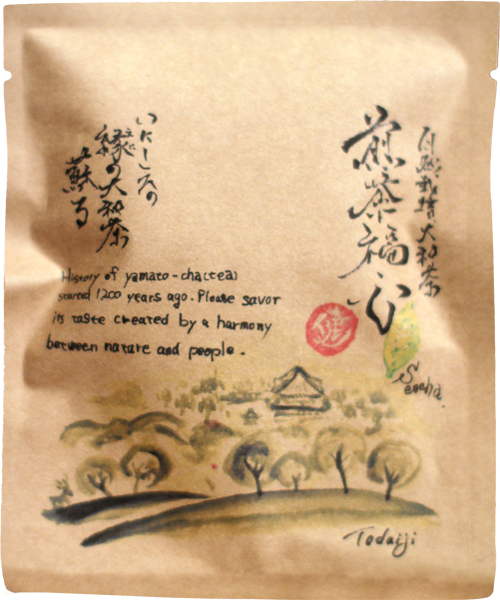 自然栽培大和茶
煎茶福分
Sencha.
いにしえの
縁の大和茶
えにし
蘇る
History of yamato-cha(tea)
started 1200 years ago. Please savor
its taste created by a harmony
between nature and people.
Todaiji